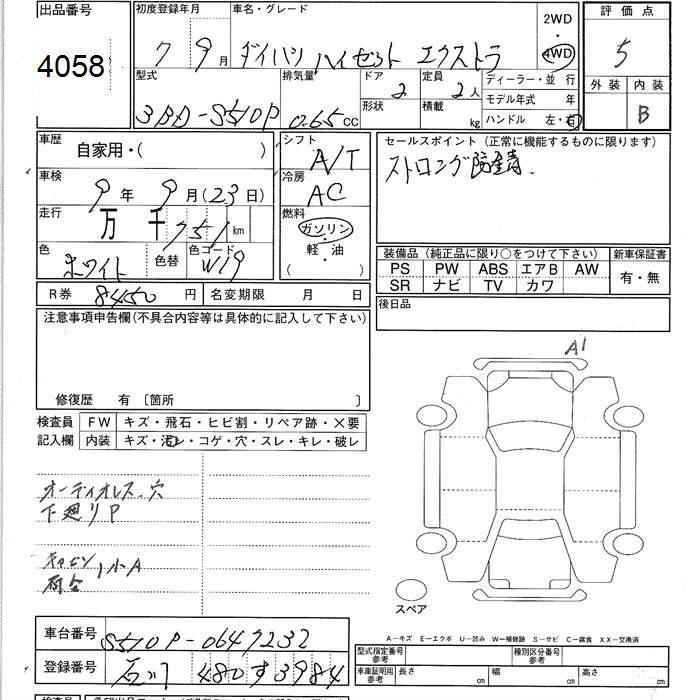 出品番号
4058
初度登録年月
7 9月
車名・グレード
ダイハツ ハイゼット エクストラ
2WD
・
4WD
評価点
5
外装 内装
B
型式
3BD-S510P
排気量
0.65cc
ドア
2
形状
定員
2人
積載
kg
ディーラー・並行
モデル年式 年
ハンドル 左・右
車歴
自家用・( )
車検
9年 9月(23日)
走行
万千751km
色
ホワイト
色替
色コード
W19
シフト
A/T
冷房
AC
燃料
ガソリン
・
軽・油
( )
セールスポイント(正常に機能するものに限ります)
ストロング防錆.
装備品(純正品に限り○をつけて下さい)
PS PW ABS エアB AW
SR ナビ TV カワ
新車保証書
有・無
R券 8450円
名変期限 月 日
後日品
注意事項申告欄(不具合内容等は具体的に記入して下さい)
修復歴 有 〔箇所 〕
検査員
記入欄
FW キズ・飛石・ヒビ割・リペア跡・×要
内装 キズ・汚レ・コゲ・穴・スレ・キレ・破レ
オーディオレス、穴
下廻りP
キャビン
荷台 小A
A1
スペア
A-キズ E-エクボ U-凹み W-補修跡 S-サビ C-腐食 XX-交換済
車台番号 S510P-0647232
登録番号 石川 480す3984
型式指定番号
参考
種別区分番号
参考
車庫証明用
参考
長さ cm
幅 cm
高さ cm